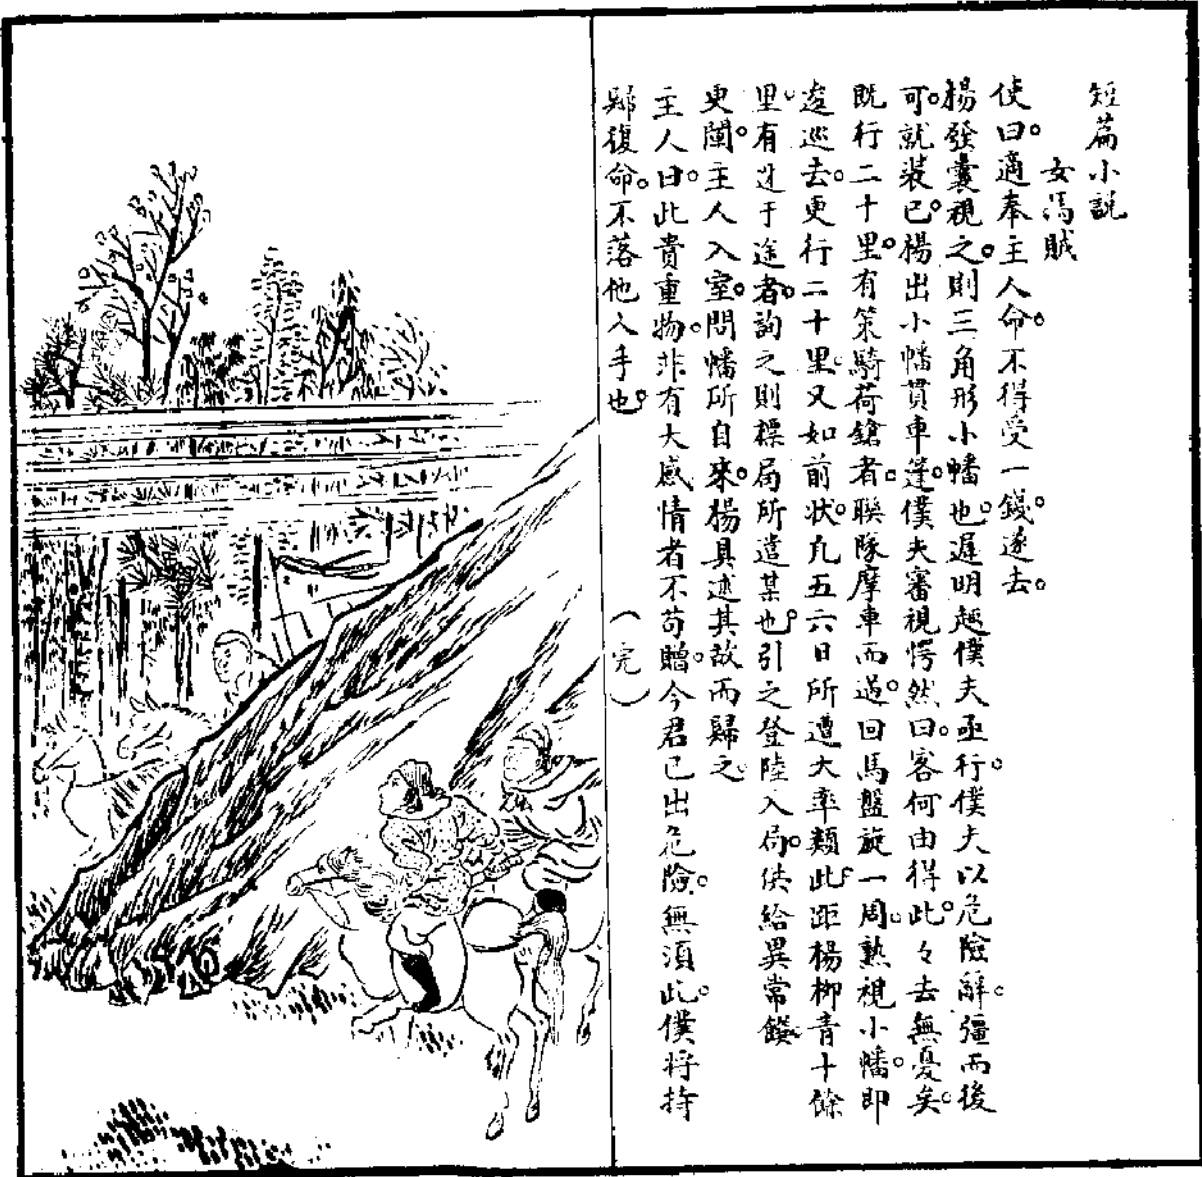 短篇小説
女馬賊
使曰。適奉主人命。不得受一錢。遂去。
楊發囊視之。則三角形小幡也。遲明趣僕夫亟行。僕夫以危險辭。彊而後
可。就裝已。楊出小幡貫車篷。僕夫審視愕然曰。客何由得此。々去無憂矣。
既行二十里。有策騎荷鎗者。聯隊摩車而過。回馬盤旋一周。熟視小幡。即
逡巡去。更行二十里。又如前狀。凡五六日所遭大率類此。距楊柳青十餘
里。有迓于途者。詢之則標局所遣某也。引之登陸入局。供給異常饌
更闌。主人入室。問幡所自來。楊具述其故而歸之。
主人曰。此貴重物。非有大感情者不苟贈。今君已出危險。無須此。僕將持
歸復命。不落他人手也。
(完)